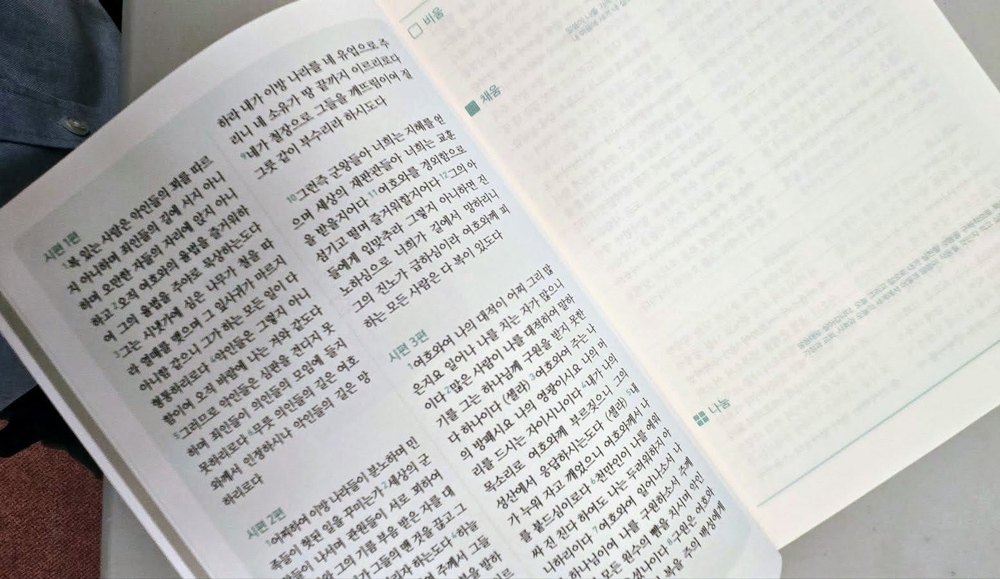 시편 1편
1복 있는 사람은 악인들의 꾀를 따르
지 아니하며 죄인들의 길에 서지 아니
하며 오만한 자들의 자리에 앉지 아니
하고 2오직 여호와의 율법을 즐거워하
여 그의 율법을 주야로 묵상하는도다
3그는 시냇가에 심은 나무가 철을 따
라 열매를 맺으며 그 잎사귀가 마르지
아니함 같으니 그가 하는 모든 일이 다
형통하리로다 4악인들은 그렇지 아니
함이여 오직 바람에 나는 겨와 같도다
5그러므로 악인들은 심판을 견디지 못
하며 죄인들이 의인들의 모임에 들지
못하리로다 6무릇 의인들의 길은 여호
와께서 인정하시나 악인들의 길은 망
하리로다
시편 2편
1어찌하여 이방 나라들이 분노하며 민
족들이 헛된 일을 꾸미는가 2세상의 군
나서며 관원들이 서로 꾀하여
와 그의 기름 부음 받은 자를 대
그들의 맨 것을 끊고 그
자 하는도다 4하늘
주께서 그들
발하
하라 내가 이방 나라를 네 유업으로 주
리니 네 소유가 땅 끝까지 이르리로다
9네가 철장으로 그들을 깨뜨림이여 질
그릇 같이 부수리라 하시도다
10그런즉 군왕들아 너희는 지혜를 얻
으며 세상의 재판관들아 너희는 교훈
을 받을지어다 11여호와를 경외함으로
섬기고 떨며 즐거워할지어다 12그의 아
들에게 입맞추라 그렇지 아니하면 진
노하심으로 너희가 길에서 망하리니
그의 진노가 급하심이라 여호와께 피
하는 모든 사람은 다 복이 있도다
시편 3편
1여호와여 나의 대적이 어찌 그리 많
은지요 일어나 나를 치는 자가 많으니
이다 2많은 사람이 나를 대적하여 말하
기를 그는 하나님께 구원을 받지 못한
다 하나이다 (셀라) 3여호와여 주는 나
의 방패시요 나의 영광이시요 나의 머
리를 드시는 자이시니이다 4내가 나의
목소리로 여호와께 부르짖으니 그의
성산에서 응답하시는도다 (셀라) 5내
가 누워 자고 깨었으니 여호와께서 나
를 붙드심이로다 6천만인이 나를 에워
싸 진 친다 하여도 나는 두려워하지 아
니하리이다 7여호와여 일어나소서 나
의 하나님이여 나를 구원하소서 주께
서 나의 모든 원수의 뺨을 치시며 악인
8구원은 여호와
주의 백성에게
비움
채움
나눔